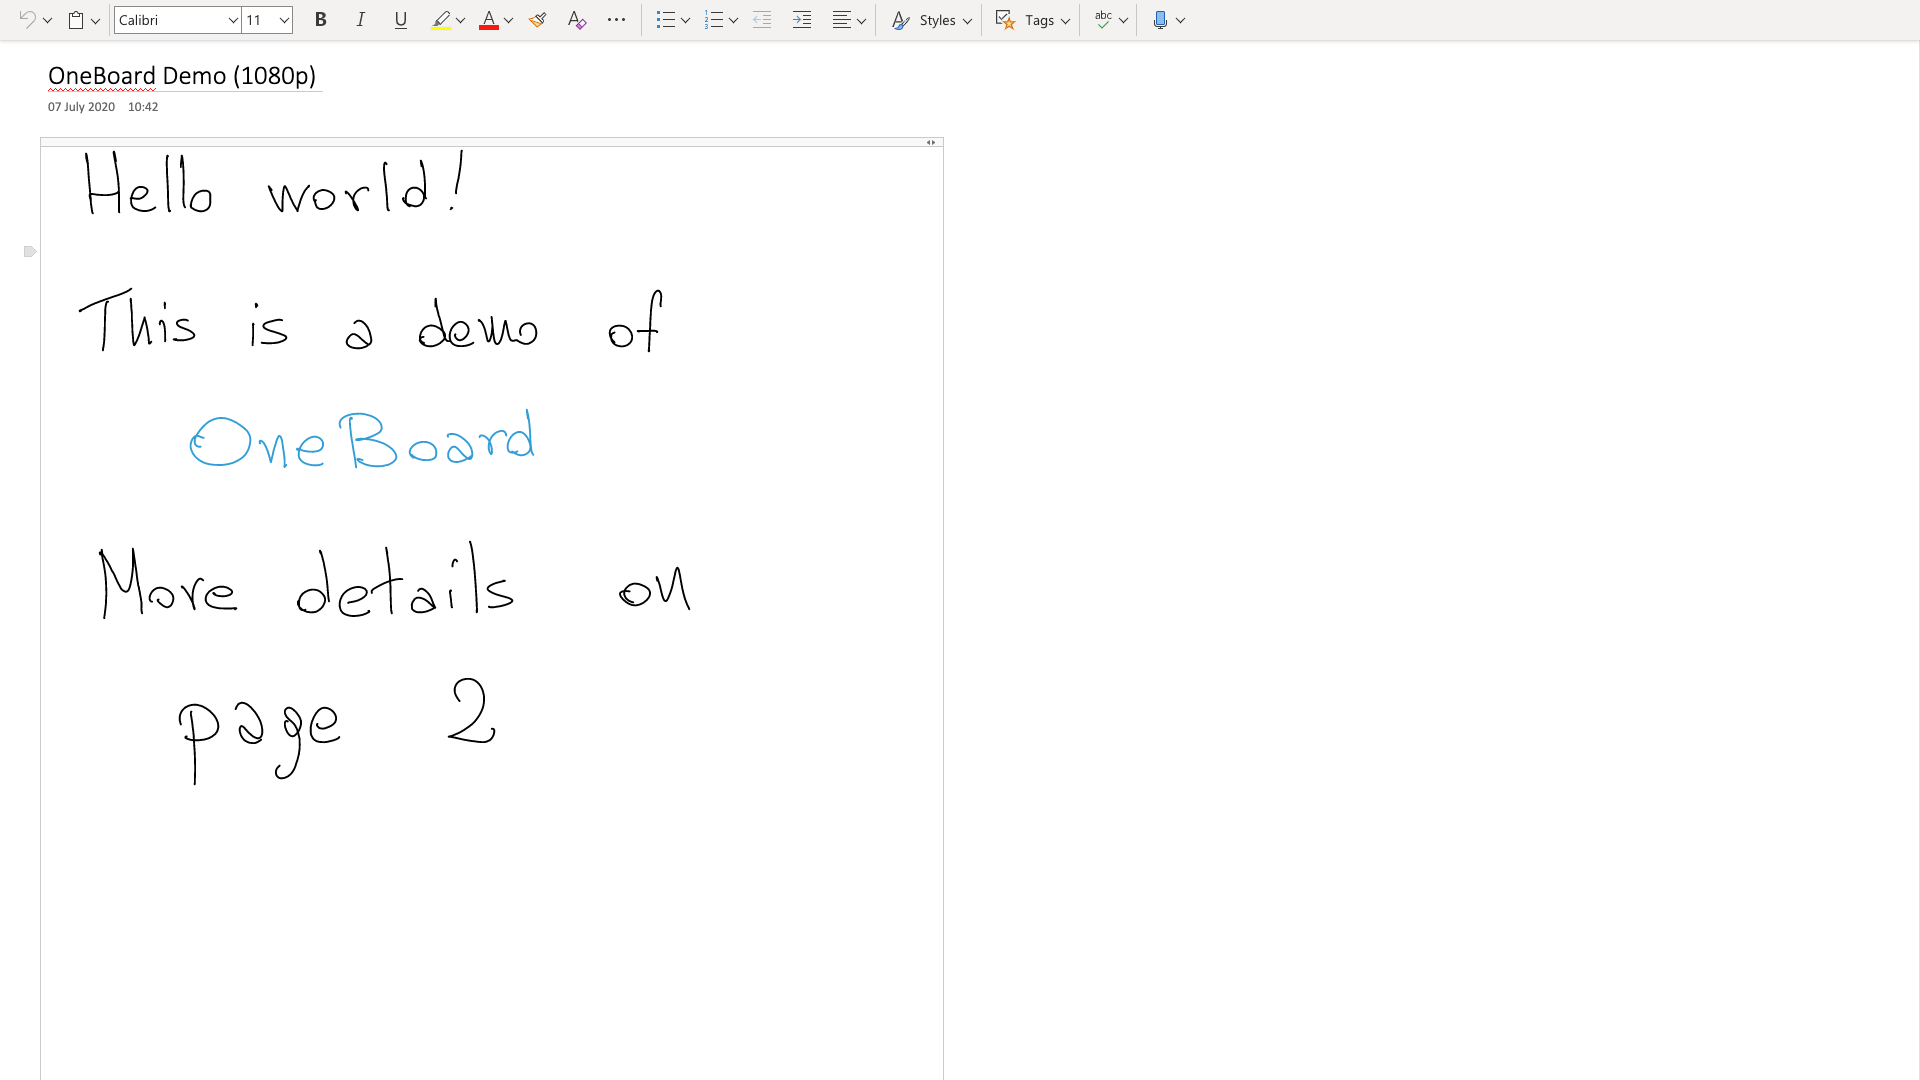 Calibri 11 B I U A Styles Tags abc
OneBoard Demo (1080p)
07 July 2020 10:42
Hello world!
This is a demo of
OneBoard
More details on
page 2